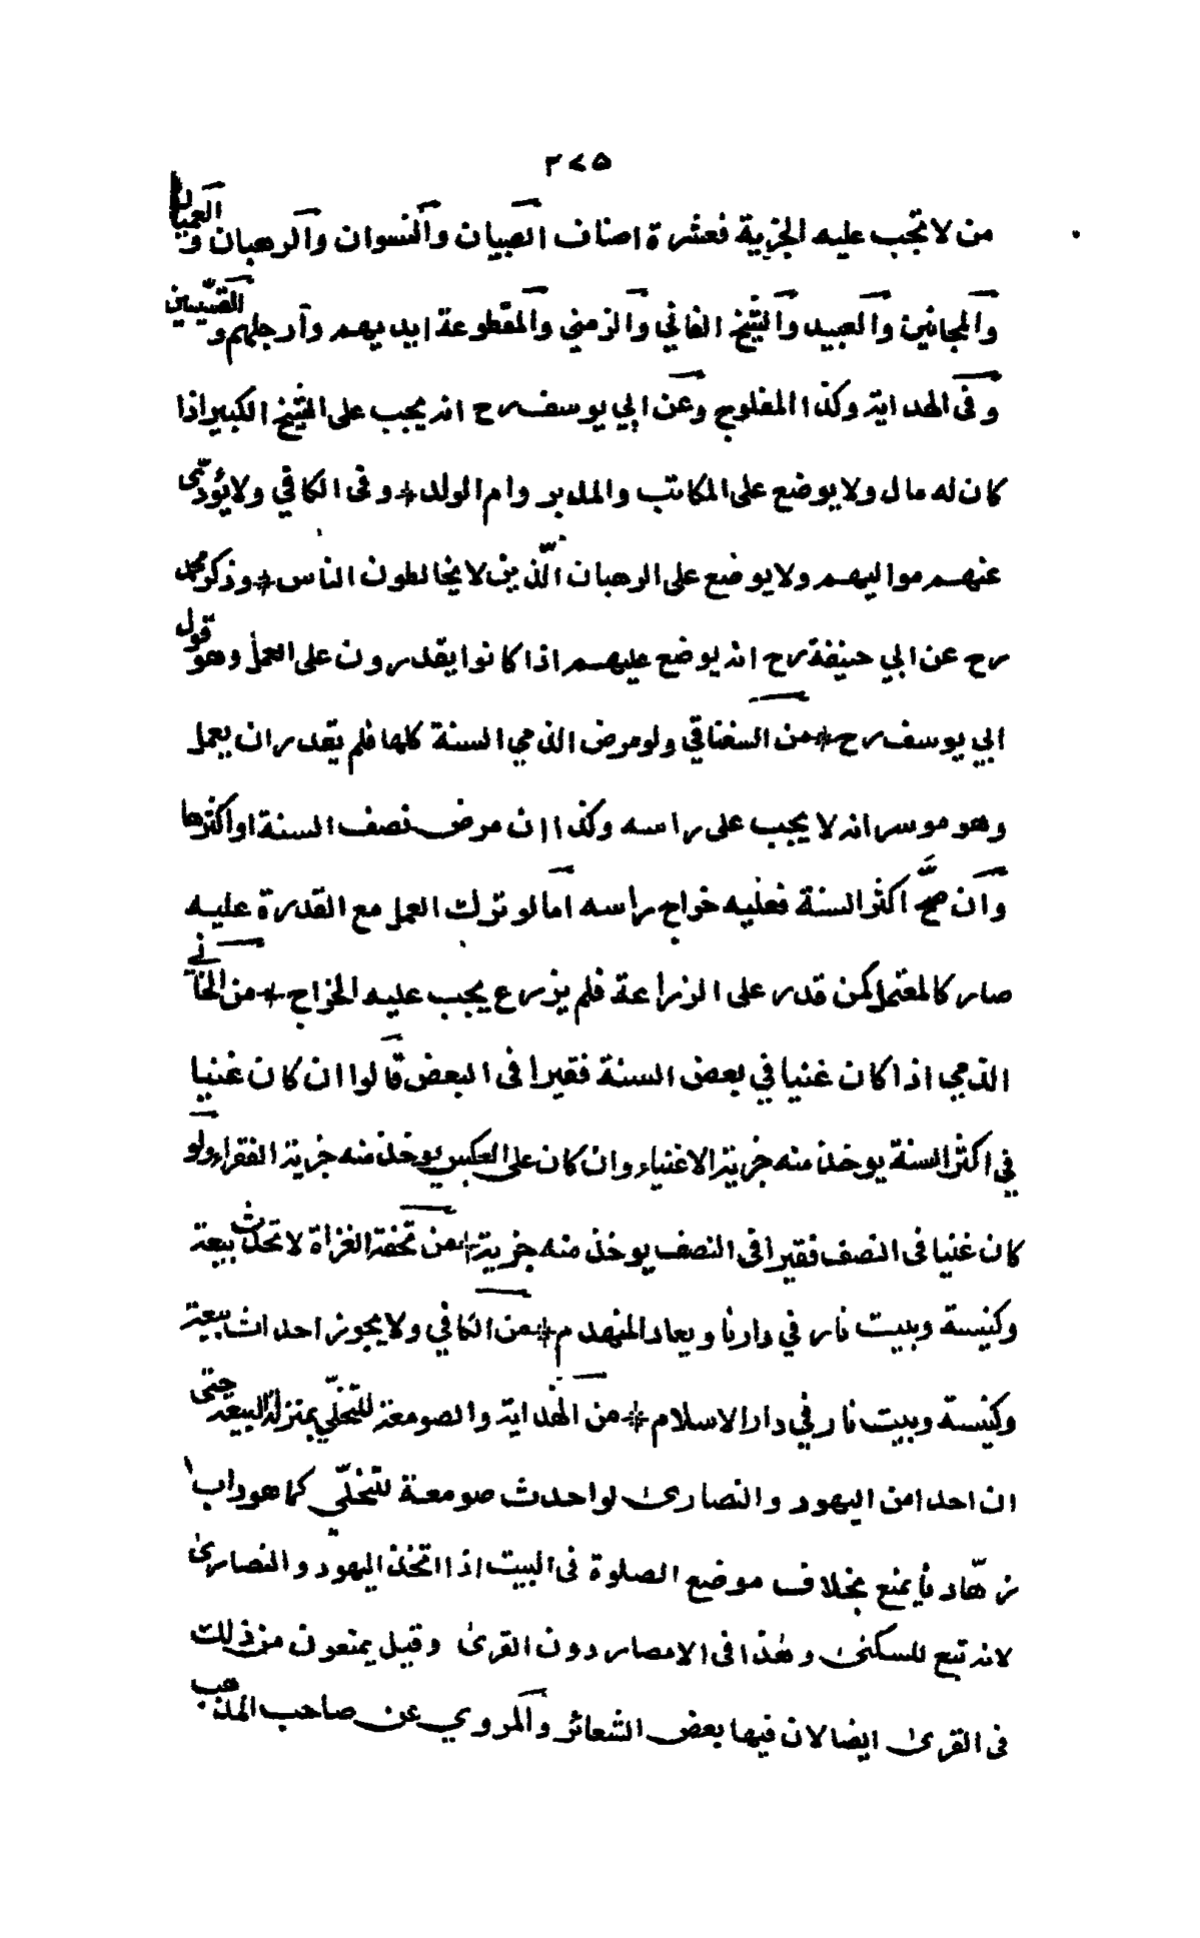 ٢٧٥
من لا تجب عليه الجزية فعشرة اصناف الصبيان والنسوان والرهبان والعميان
والمجانين والعبيد والشيخ الفاني والزمني والمقطوعة ايديهم وارجلهم والقسيسين
وفى الهداية وكذا المفلوج وعن ابي يوسف رح انه يجب على الشيخ الكبير اذا
كان له مال ولا يوضع على المكاتب والمدبر وام الولد * وفى الكافي ولا يؤدّى
عنهم مواليهم ولا يوضع على الرهبان الّذين لا يخالطون الناس * وذكر محمد
رح عن ابي حنيفة رح انه يوضع عليهم اذا كانوا يقدرون على العمل وهو قول
ابي يوسف رح * من السغناقي ولو مرض الذمي السنة كلها فلم يقدر ان يعمل
وهو موسر انه لا يجب على راسه وكذا ان مرض نصف السنة او اكثرها
وان صحّ اكثر السنة فعليه خراج راسه اما لو ترك العمل مع القدرة عليه
صار كالمعتمل كمن قدر على الزراعة فلم يزرع يجب عليه الخراج * من الخاني
الذمي اذا كان غنيا في بعض السنة فقيرا فى البعض قالوا ان كان غنيا
في اكثر السنة يوخذ منه جزية الاغنياء وان كان على العكس يوخذ منه جزية الفقراء ولو
كان غنيا فى النصف فقيرا فى النصف يوخذ منه جزية * من تحفة الغزاة لا تحدث بيعة
وكنيسة وبيت نار في دارنا ويعاد المنهدم * من الكافي ولا يجوز احداث بيعة
وكنيسة وبيت نار في دار الاسلام * من الهداية والصومعة للتخلّي بمنزلة البيعة حتى
ان احدا من اليهود والنصارى لو احدث صومعة للتخلّي كما هو داب
زهّادنا يمنع بخلاف موضع الصلوة فى البيت اذا اتخذ اليهود والنصارى
لانه تبع للسكنى وهذا فى الامصار دون القرى وقيل يمنعون من ذلك
فى القرى ايضا لان فيها بعض الشعائر والمروي عن صاحب المذهب